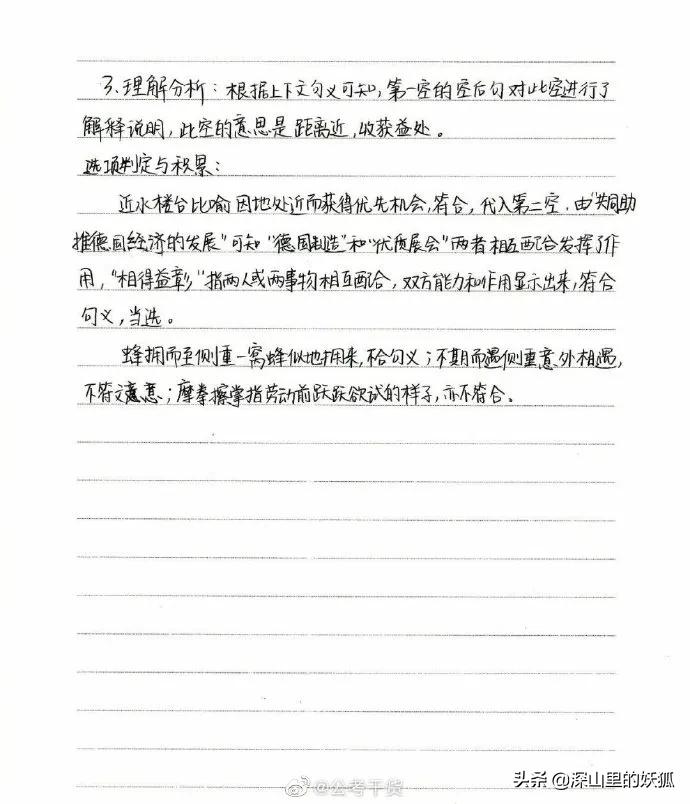 3、理解分析：根据上下文句义可知，第一空的空后句对此空进行了
解释说明，此空的意思是距离近，收获益处。
选项判定与积累：
近水楼台比喻因地处近而获得优先机会，符合，代入第二空．由"共同助
推德国经济的发展"可知"德国制造"和"优质展会"两者相互配合发挥了作
用，"相得益彰"指两人或两事物相互配合，双方能力和作用显示出来，符合
句义，当选。
蜂拥而至侧重一窝蜂似地拥来，不合句义；不期而遇侧重意外相遇，
不符文意；摩拳擦掌指劳动前跃跃欲试的样子，亦不符合。
@公考干货
头条@深山里的妖狐